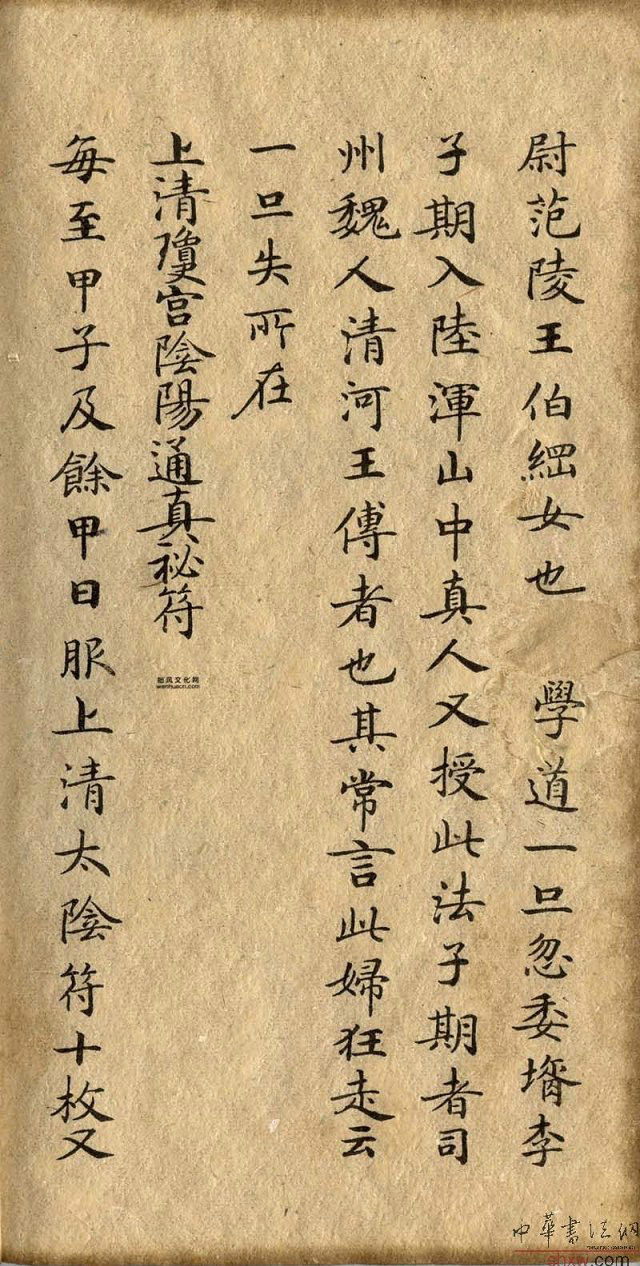 尉范陵王伯綱女也 學道一旦忽委壻李
子期入陸渾山中真人又授此法子期者司
州魏人清河王傅者也其常言此婦狂走云
一旦失所在
上清瓊宮陰陽通真祕符
每至甲子及餘甲日服上清太陰符十枚又
wenhuacn.com
中華書法網